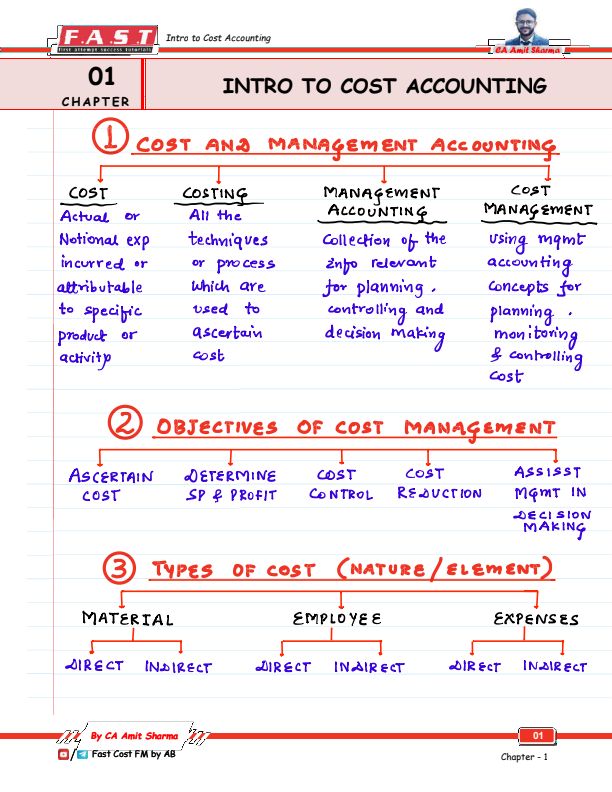 F.A.S.T
first attempt success tutorials
Intro to Cost Accounting
CA Amit Sharma
01
CHAPTER
INTRO TO COST ACCOUNTING
1 COST AND MANAGEMENT ACCOUNTING
COST
Actual or
Notional exp
incurred or
attributable
to specific
product or
activity
COSTING
All the
techniques
or process
which are
used to
ascertain
cost
MANAGEMENT
ACCOUNTING
Collection of the
info relevant
for planning,
controlling and
decision making
COST
MANAGEMENT
using mgmt
accounting
concepts for
planning,
monitoring
& controlling
cost
2 OBJECTIVES OF COST MANAGEMENT
ASCERTAIN
COST
DETERMINE
SP & PROFIT
COST
CONTROL
COST
REDUCTION
ASSISST
MGMT IN
DECISION
MAKING
3 TYPES OF COST (NATURE/ELEMENT)
MATERIAL
EMPLOYEE
EXPENSES
DIRECT INDIRECT
DIRECT INDIRECT
DIRECT INDIRECT
By CA Amit Sharma
Fast Cost FM by AB
01
Chapter - 1